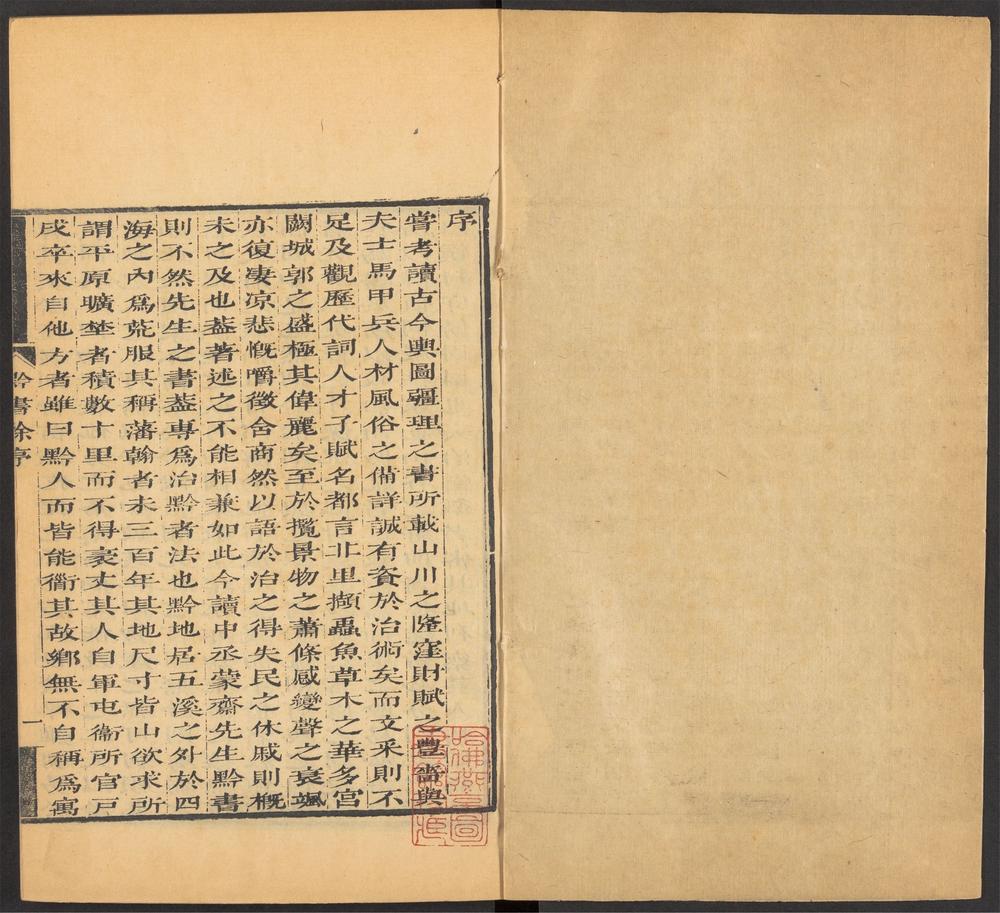 序
嘗考讀古今輿圖疆理之書所載山川之窪財賦之豐嗇與
夫士馬甲兵人材風俗之備詳誠有資於治術矣而文釆則不
足及觀歷代詞人才子賦名都言北里擷蟲魚草木之華多宮
闕城郭之盛極其偉麗矣至於攬景物之蕭條感變聲之衰颯
亦復凄凉悲慨嚼徵含商然以語於治之得失民之休戚則概
未之及也葢著述之不能相兼如此今讀中丞蒙齋先生黔書
則不然先生之書葢專爲治黔者法也黔地居五溪之外於四
海之內爲荒服其稱藩翰者未三百年其地尺寸皆山欲求所
謂平原曠埜者積數十里而不得袤丈其人自軍屯衞所官戸
戍卒來自他方者雖曰黔人而皆能衢其故鄉無不自稱爲寓
黔書徐序
一